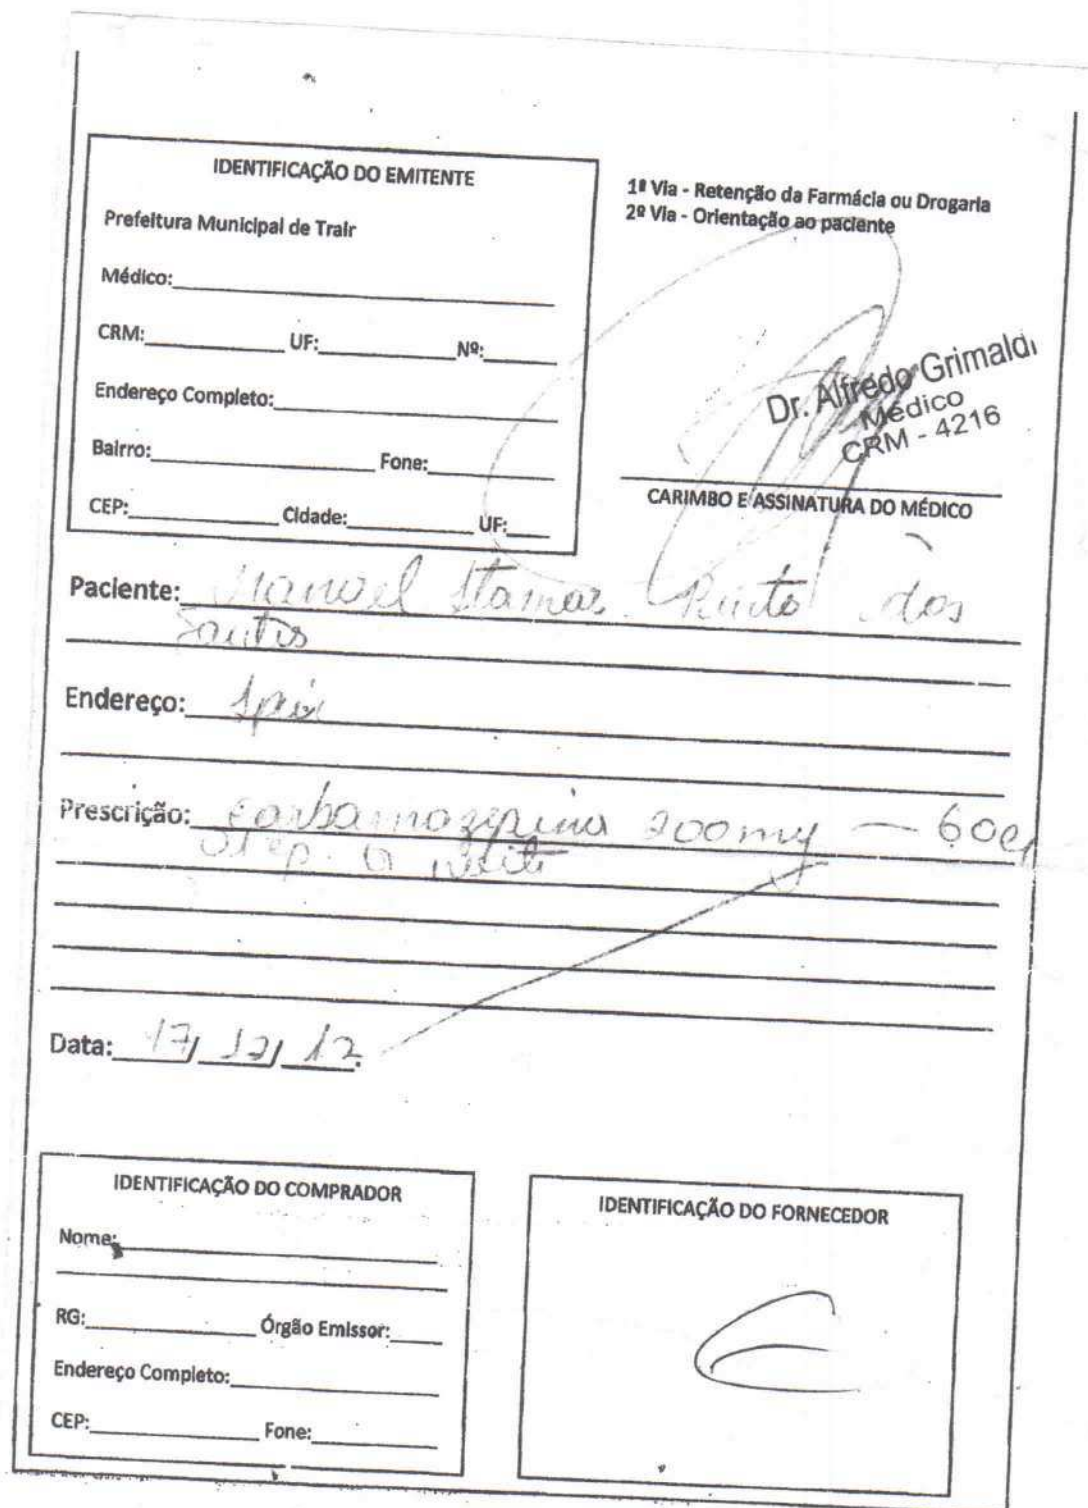 IDENTIFICAÇÃO DO EMITENTE
Prefeitura Municipal de Trair
Médico:
CRM: UF: Nº:
Endereço Completo:
Bairro: Fone:
CEP: Cidade: UF:
1ª Via - Retenção da Farmácia ou Drogaria
2ª Via - Orientação ao paciente
Dr. Alfredo Grimaldi
Médico
CRM - 4216
CARIMBO E ASSINATURA DO MÉDICO
Paciente: Manoel Itamar Pinto dos
Santos
Endereço:
Prescrição: Carbamazepina 200mg — 60cp
01 cp. à noite
Data: 17/12/12
IDENTIFICAÇÃO DO COMPRADOR
Nome:
RG: Órgão Emissor:
Endereço Completo:
CEP: Fone:
IDENTIFICAÇÃO DO FORNECEDOR